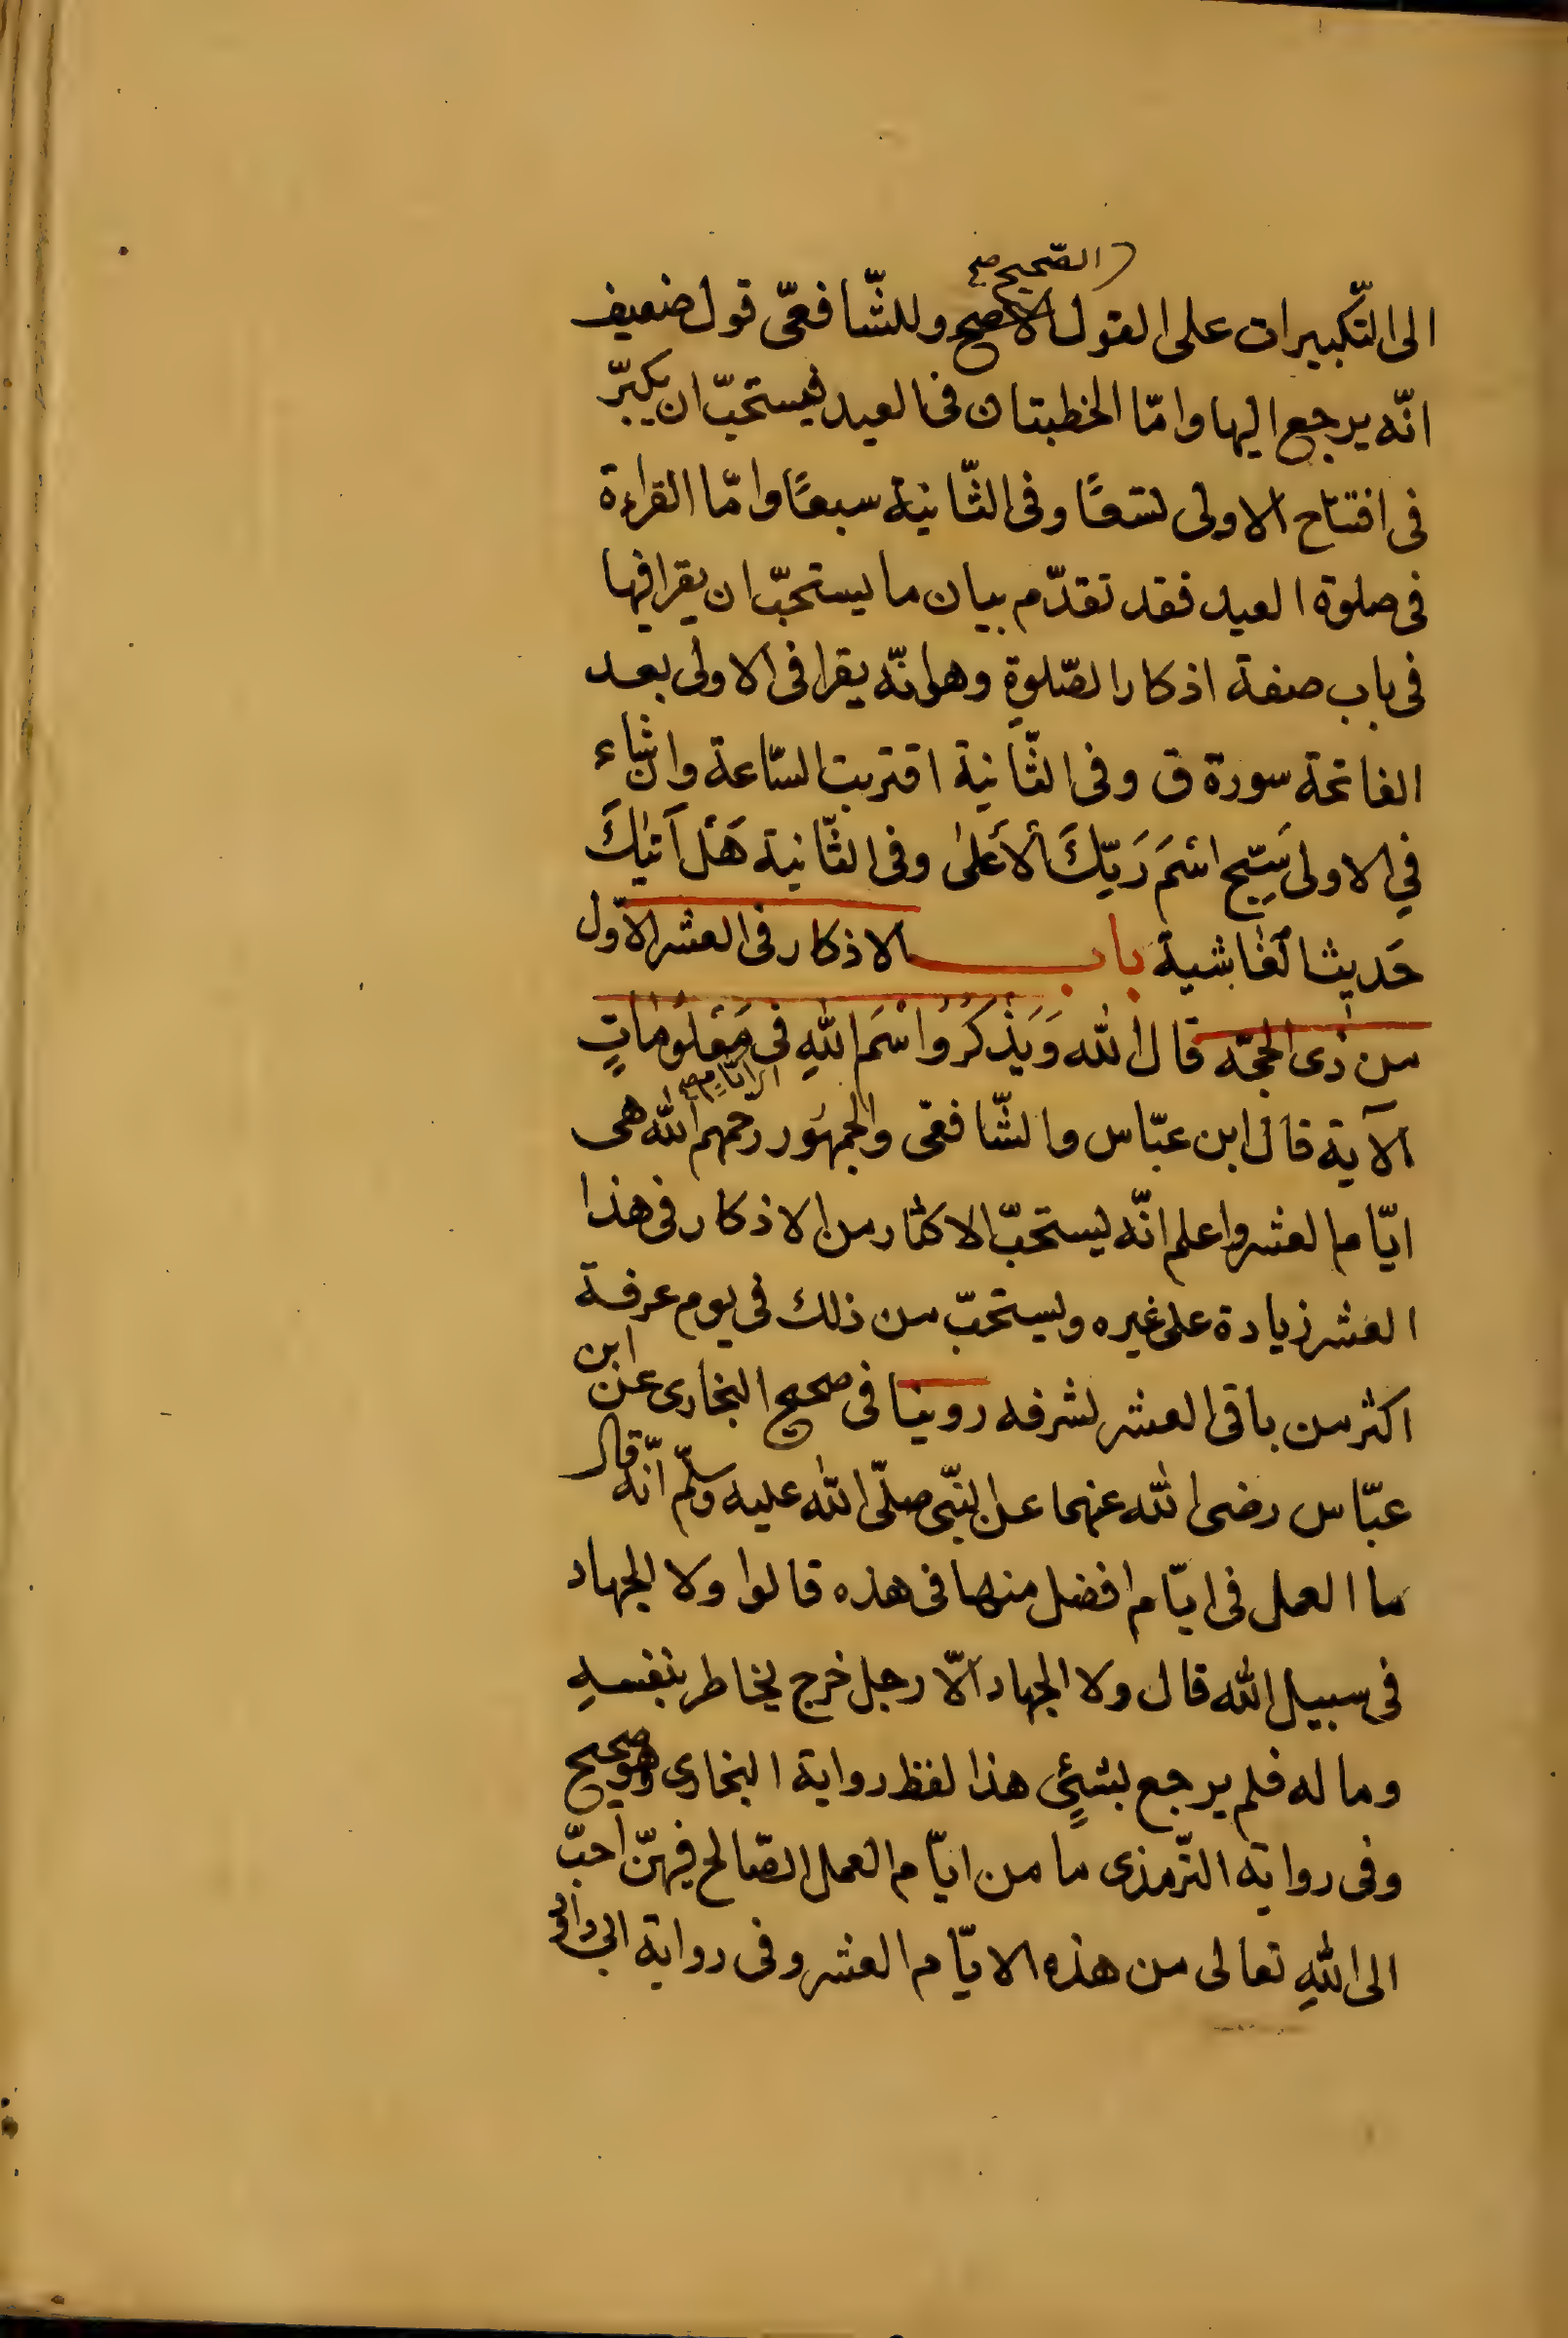 الصّحيح صح
الى التّكبيرات على القول الاصح وللشّافعّى قول ضعيف
انّه يرجع اليها وامّا الخطبتان فى العيد فيستحبّ ان يكبّر
فى افتتاح الاولى تسعًا وفى الثّانية سبعًا وامّا القراءة
فى صلوة العيد فقد تقدّم بيان ما يستحبّ ان يقرا فيها
فى باب صفة اذكار الصّلوةِ وهو انّه يقرا فى الاولى بعد
الفاتحة سورة ق وفى الثّانية اقتربت السّاعة وان شاء
في الاولى سَبِّحِ اسْمَ رَبِّكَ الأَعْلىٰ وفى الثّانية هَلْ اَتٰيكَ
حَديث الغَاشية باب الاذكار فى العشر الاوّل
من ذى الحجّه قال الله وَيَذْكُرُوا اسْمَ اللهِ فى مَعْلُومَاتٍ
ايّامٍ صح
الآية قال ابن عبّاس والشّافعّى والجمهُور رحمهم الله هى
ايّام العشر واعلم انّه يستحبّ الاكثار من الاذكار فى هذا
العشر زيادة على غيره ويستحبّ من ذلك فى يوم عرفة
اكثر من باقى العشر لشرفه روينا فى صحيح البخارى عن ابن
عبّاس رضى الله عنهما عن النّبّى صلّى الله عليه وسلّم انّه قال
ما العمل فى ايّام افضل منها فى هذه قالوا ولا الجهاد
فى سبيل الله قال ولا الجهاد الّا رجل خرج يخاطر بنفسهِ
وماله فلم يرجع بشيٍئ هذا لفظ رواية البخارى وهو صحيح
وفى رواية التّرمذى ما من ايّام العمل الصّالح فيهنّ احبّ
الى اللهِ تعالى من هذه الايّام العشر وفى رواية ابى داود